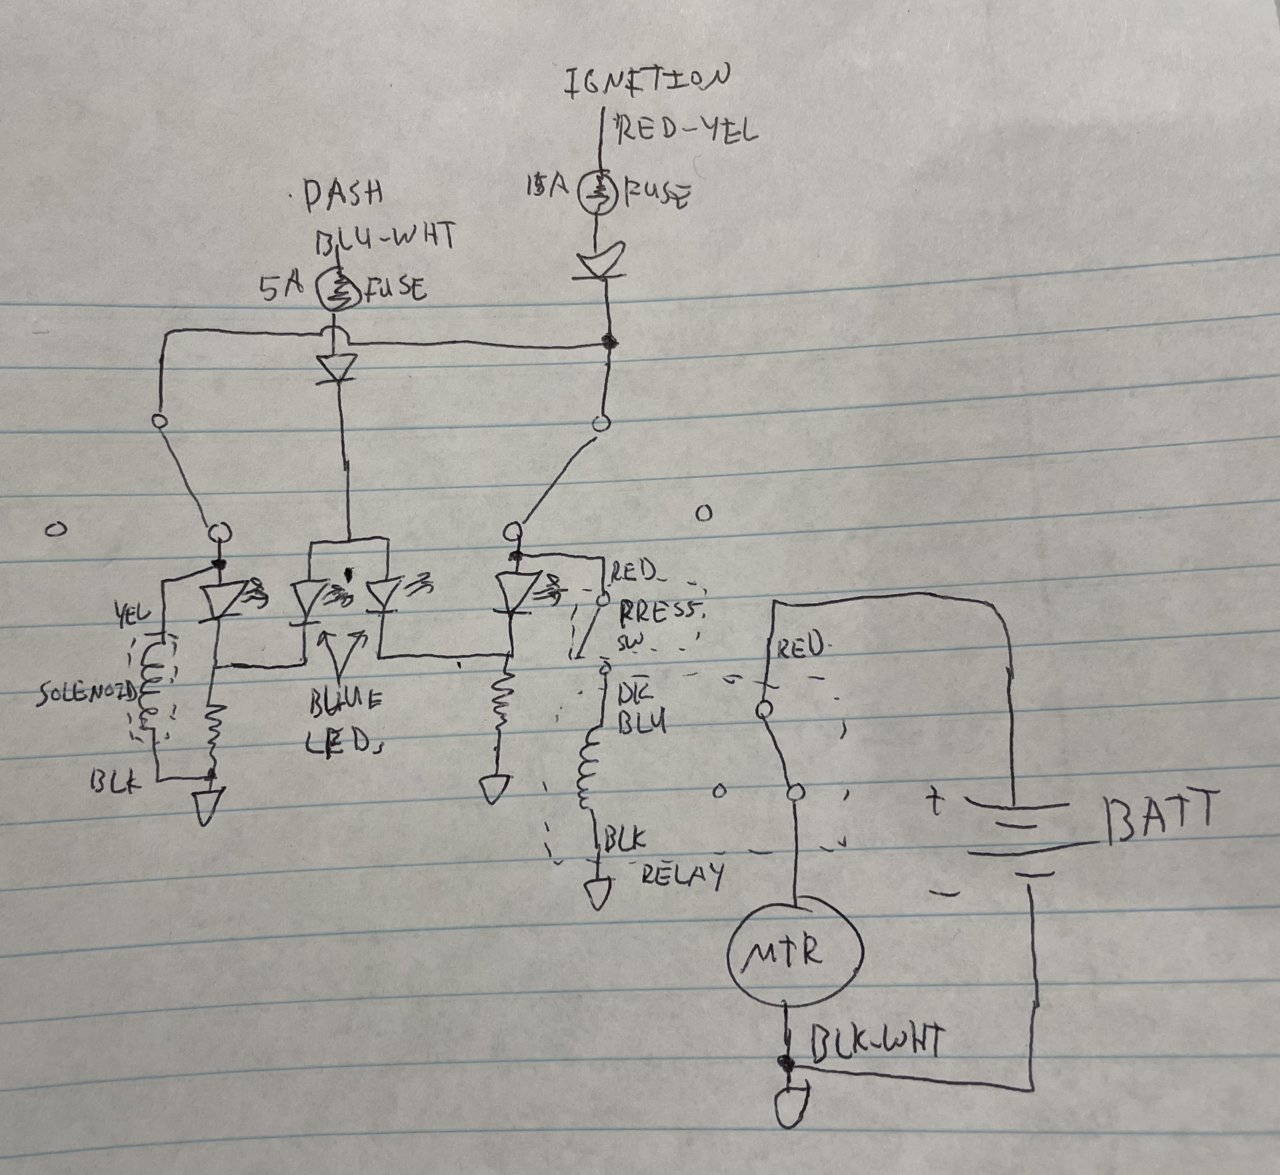 IGNITION
RED-YEL
15A FUSE
DASH
BLU-WHT
5A FUSE
RED
PRESS.
SW
YEL
RED
SOLENOID
DK
BLU
BLUE
LED,
BLK
+ BATT
BLK
RELAY
-
MTR
BLK-WHT